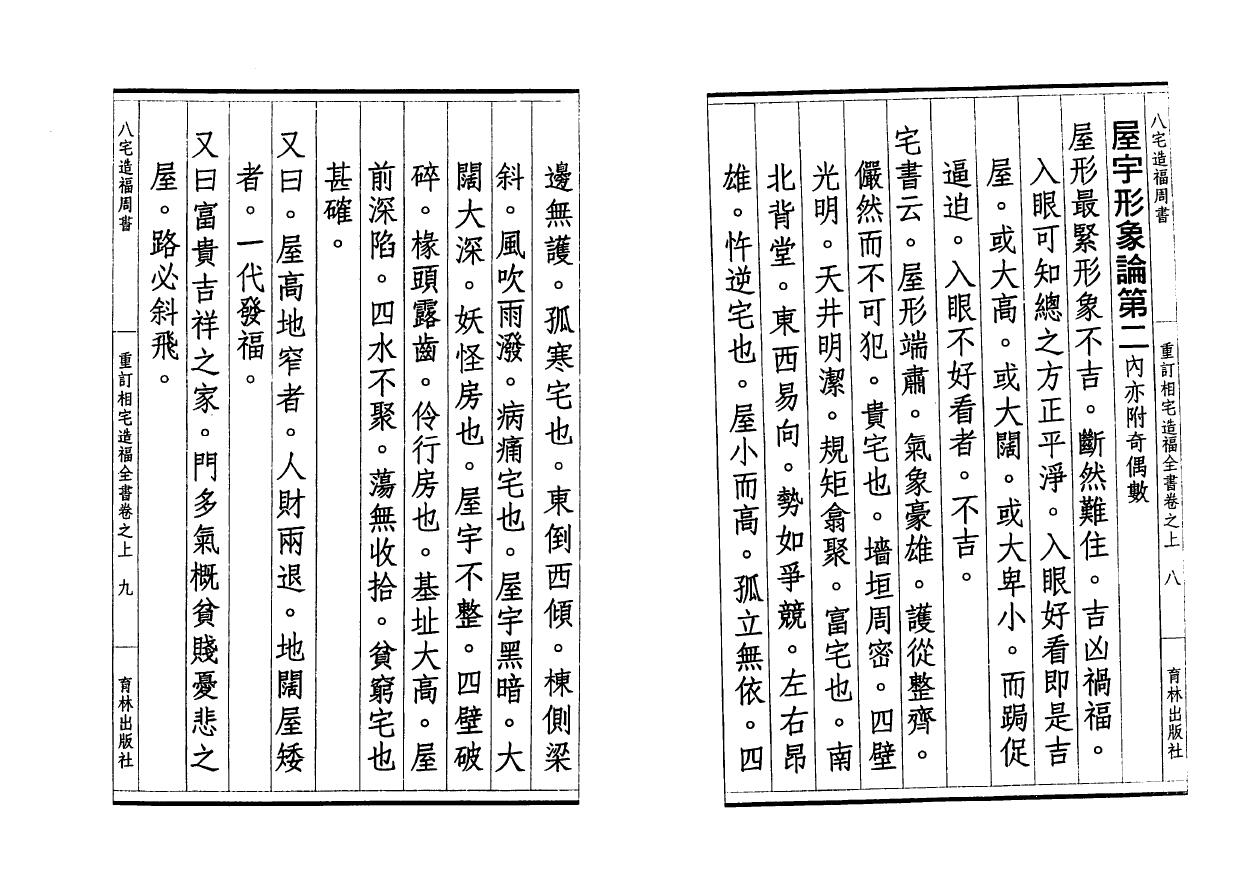 八宅造福周書 重訂相宅造福全書卷之上 八 育林出版社
屋宇形象論第二 內亦附奇偶數
屋形最緊形象不吉。斷然難住。吉凶禍福。
入眼可知總之方正平淨。入眼好看即是吉
屋。或大高。或大闊。或大卑小。而跼促
逼迫。入眼不好看者。不吉。
宅書云。屋形端肅。氣象豪雄。護從整齊。
儼然而不可犯。貴宅也。墻垣周密。四壁
光明。天井明潔。規矩翕聚。富宅也。南
北背堂。東西易向。勢如爭競。左右昂
雄。忤逆宅也。屋小而高。孤立無依。四
邊無護。孤寒宅也。東倒西傾。棟側梁
斜。風吹雨潑。病痛宅也。屋宇黑暗。大
闊大深。妖怪房也。屋宇不整。四壁破
碎。椽頭露齒。伶行房也。基址大高。屋
前深陷。四水不聚。蕩無收拾。貧窮宅也
甚確。
又曰。屋高地窄者。人財兩退。地闊屋矮
者。一代發福。
又曰富貴吉祥之家。門多氣概貧賤憂悲之
屋。路必斜飛。
八宅造福周書 重訂相宅造福全書卷之上 九 育林出版社